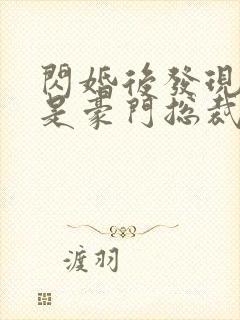 閃婚後發現
是豪門總裁
渡羽